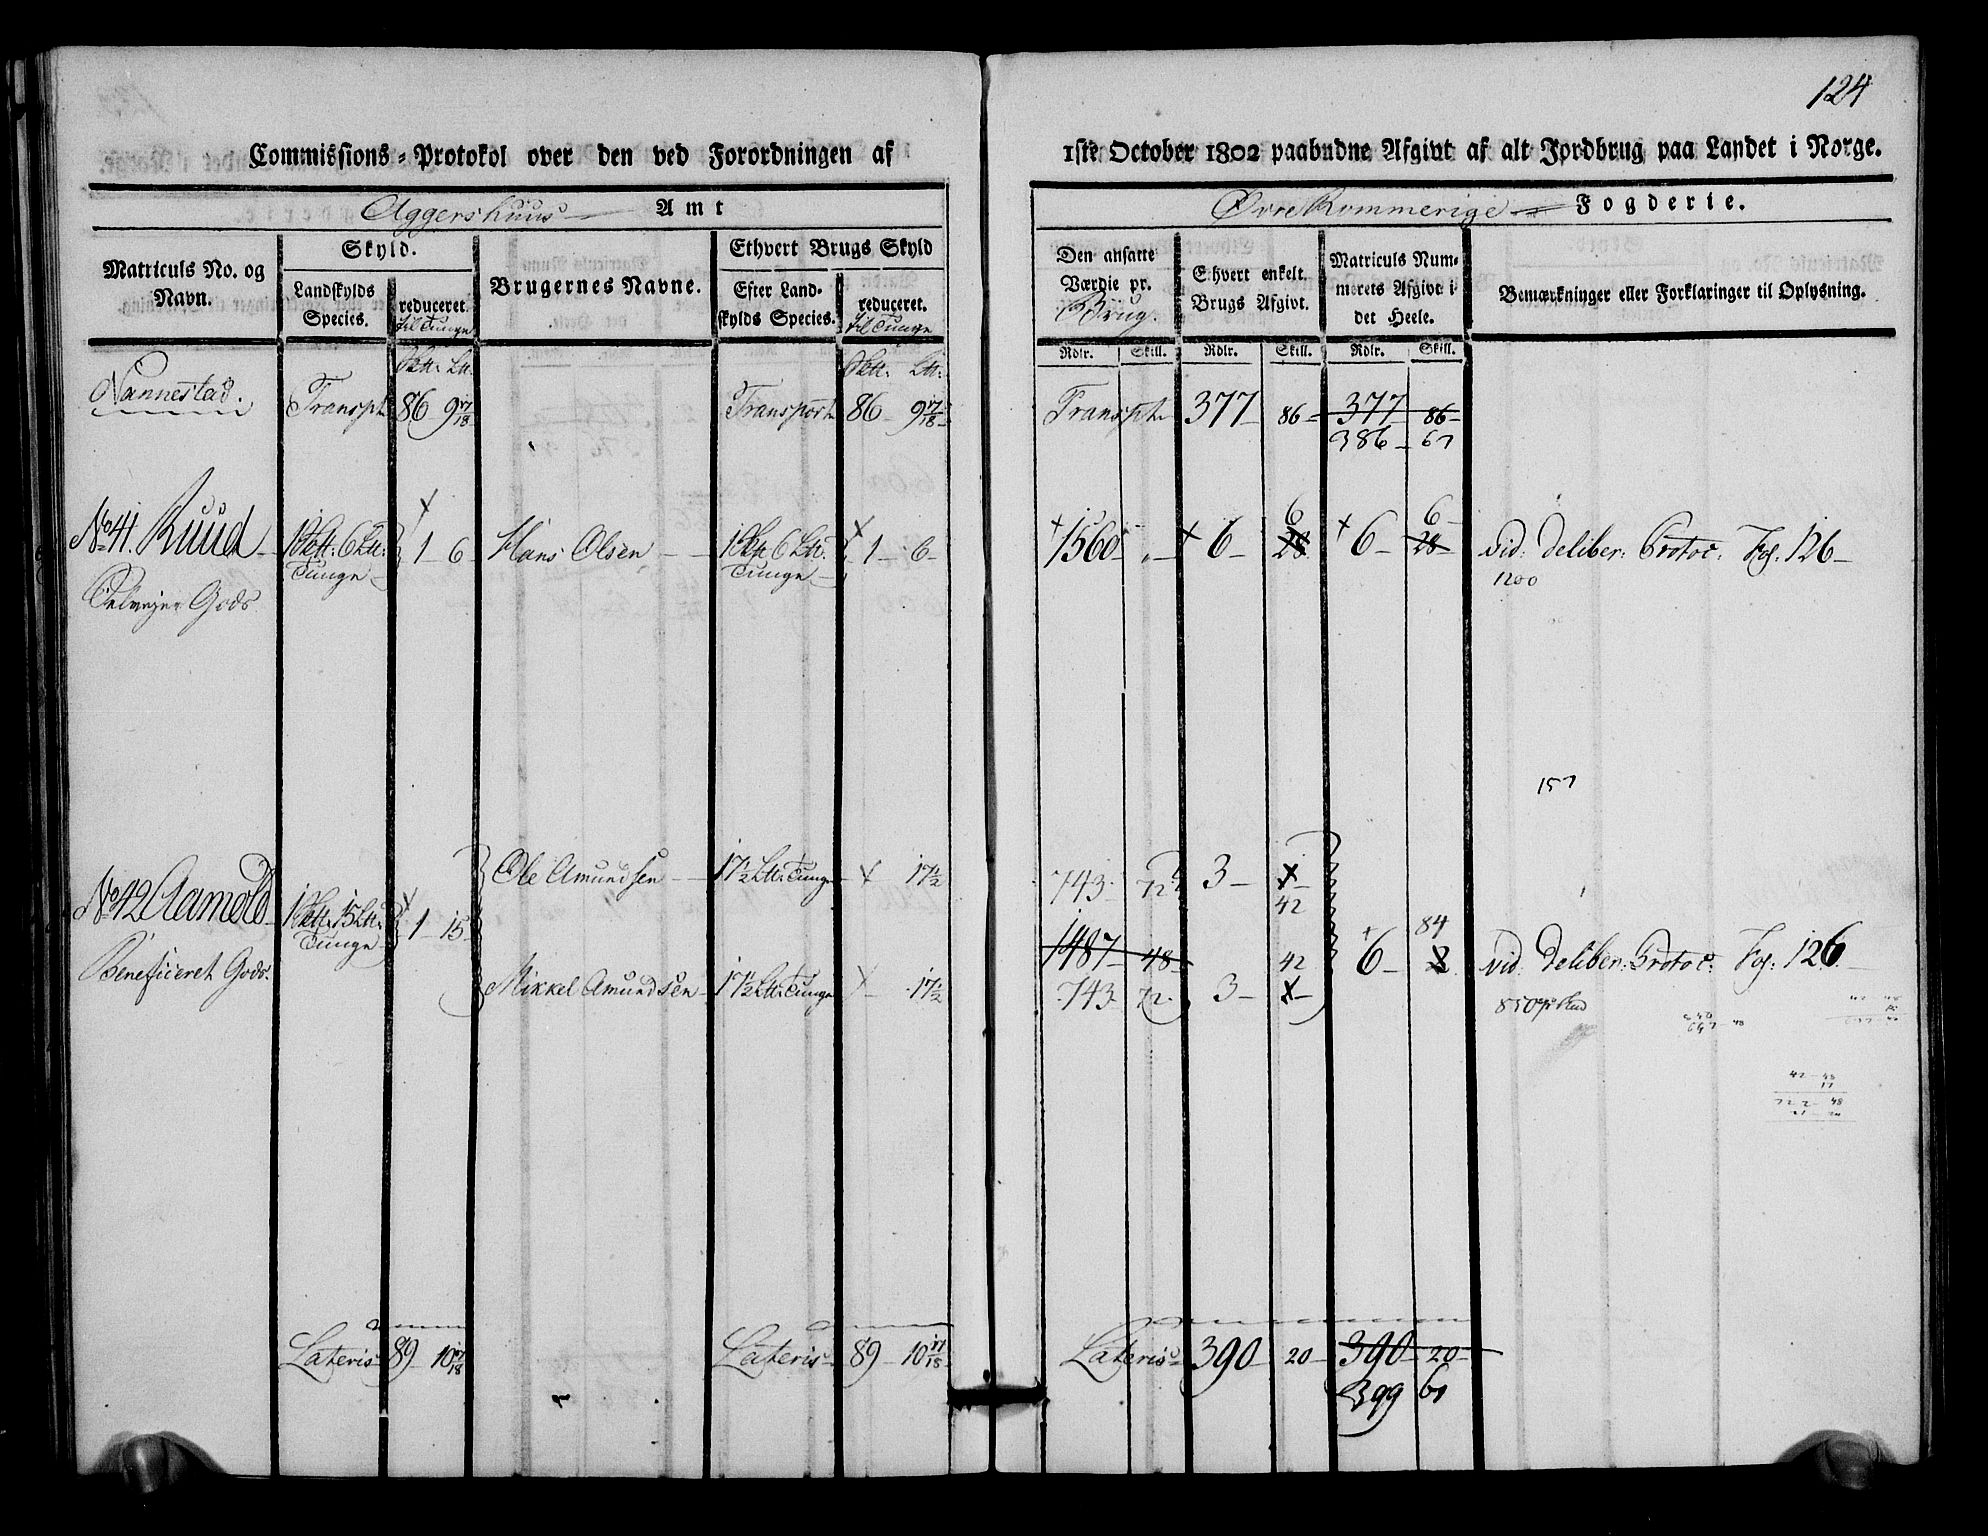 124
Commissions-Protokol over den ved Forordningen af 1ste October 1802 paabudne Afgivt af alt Jordbrug paa Landet i Norge.
Aggershuus Amt
Øvre Rommerige Fogderie.
Matriculs No. og Navn.
Skyld.
Landskylds Species.
reduceret til Tunge
Brugernes Navne.
Ethvert Brugs Skyld
Efter Landskylds Species.
reduceret. til Tunge
Den ansatte Værdie pr. Brug.
Ehvert enkelt Brugs Afgivt.
Matriculs Nummerets Afgivt i det Heele.
Bemærkninger eller Forklaringer til Oplysning.
Rdlr. Skill. Rdlr. Skill. Rdlr. Skill.
Nannestad. Transpt 86 9 17/18 Transport 86 9 17/18 Transpt 377 86 377 86
386 67
No 41. Ruud 1 Sett: 6 Ltt: Tunge 1 6 Hans Olsen 1 Sett: 6 Ltt: Tunge 1 6 1560 6 6 28 6 6 28 vid: Deliber: Protoc: Fol: 126
Selvejer Gods
1200
157
No 42 Aamold 1 Sett: 15 Ltt: Tunge 1 15
Beneficeret Gods.
Ole Amundsen 17 1/2 Ltt: Tunge 17 1/2 743 72 3 42
1487 48 6 84 vid: Deliber: Protoc: Fol: 126
Mikkel Amundsen 17 1/2 Ltt: Tunge 17 1/2 743 72 3 42
Lateris 89 10 17/18 Lateris 89 10 17/18 Lateris 390 20 390 20
399 61